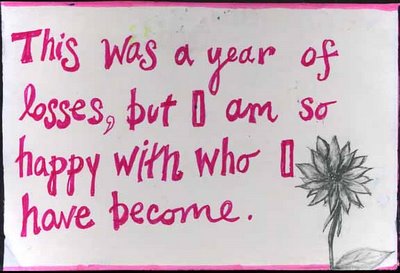 This was a year of
losses, but I am so
happy with who I
have become.